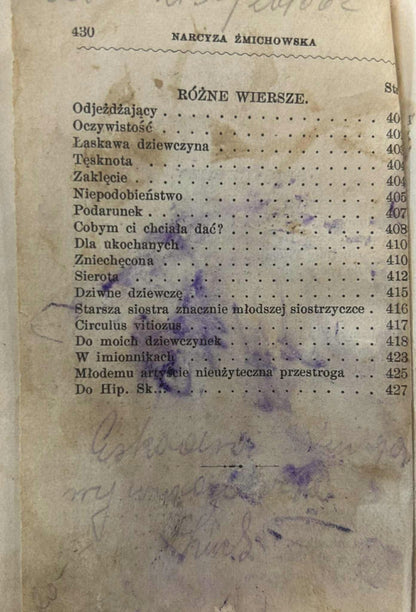 430 NARCYZA ŻMICHOWSKA
RÓŻNE WIERSZE.
Odjeżdżający
Oczywistość
Łaskawa dziewczyna
Tęsknota . . . . . . . . . . 404
Zaklęcie . . . . . . . . . . 404
Niepodobieństwo . . . . . . . . . . 405
Podarunek . . . . . . . . . . 407
Cobym ci chciała dać? . . . . . . . . . . 408
Dla ukochanych . . . . . . . . . . 410
Zniechęcona . . . . . . . . . . 410
Sierota . . . . . . . . . . 412
Dziwne dziewczę . . . . . . . . . . 415
Starsza siostra znacznie młodszej siostrzyczce . 416
Circulus vitiozus . . . . . . . . . . 417
Do moich dziewczynek . . . . . . . . . . 418
W imionnikach . . . . . . . . . . 423
Młodemu artyście nieużyteczna przestroga . . . 425
Do Hip. Sk. . . . . . . . . . . 427